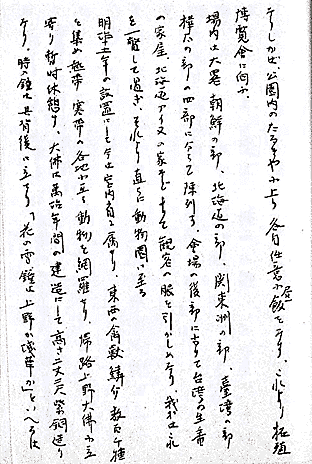 てしかば、公園内のたるやに上り各自任意に昼飯をなす、これより拓殖
博覧会に向ふ
場内は大略朝鮮の部、北海道の部、関東州の部、臺湾の部
樺太の部の四部に分ちて陳列す、会場の後部に当て台湾の生蕃
の家屋、北海道アイヌの家などありて観客の眼を引かしめたり、我等は之れ
を一覧して過ぎ、それより直ちに動物園に至る
明治十五年の設置にして宮内省に属す、東西の禽獣鱗介数百種
を集め熱帯寒帯の各地に至る動物を網羅せり、帰路上野大佛に立
寄り暫時休憩す、大佛は萬治年間の建造にして高さ二丈二尺紫銅造り
なり、時の鐘は其背後に立てり「花の雲鐘は上野か浅草か」といへるは